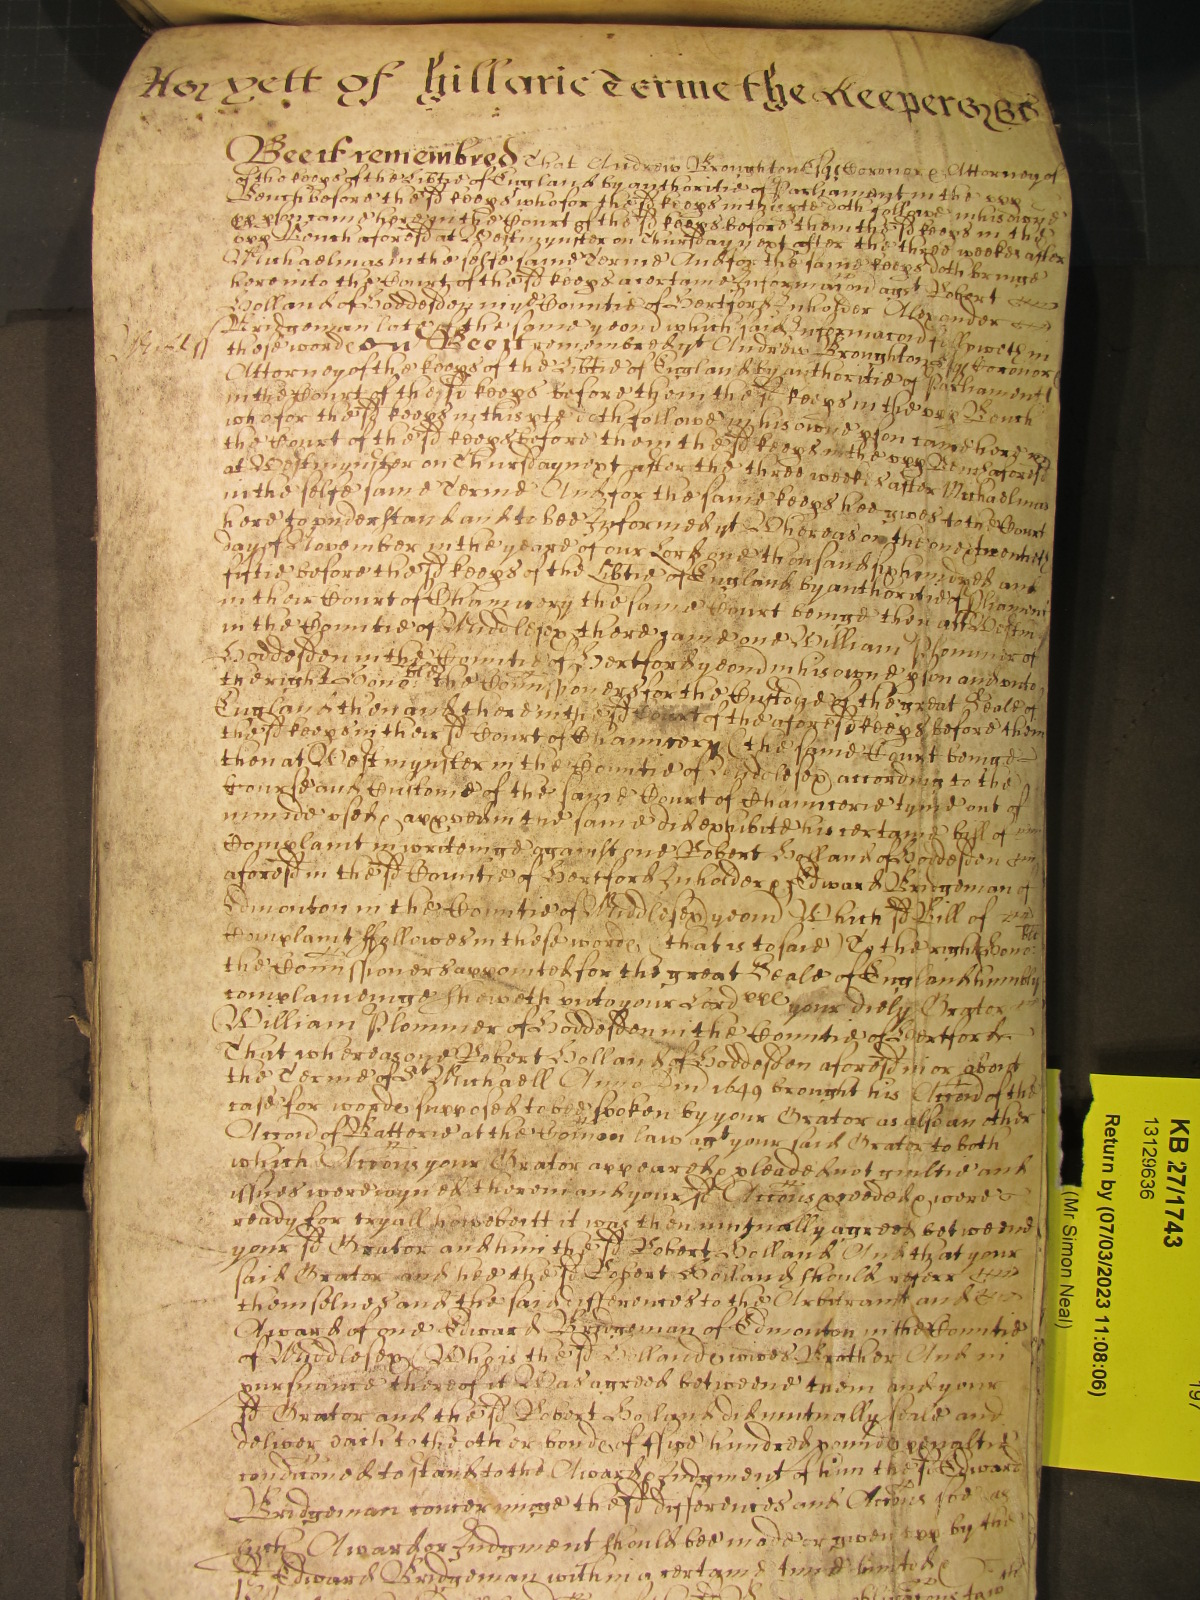 Yett of Hillarie Terme the Keepers &c
Bee it remembred That Andrew Broughton Esqr Coroner & Attorney of
the keeps of the Libtie of England by authoritie of Parliament in the upp
Bench before the sd keeps who for the sd keeps in this pte doth followe in his owne
pson came here in the Court of the sd keeps before them the sd keeps in the
upp Bench aforesd at Westmynster on Thursday next after the three weekes after
Michaelmas in the selfe same Terme And for the same keeps doth bringe
here into the Court of the sd keeps a certaine Informacion agst Robert
Holland of Hoddesden in ye Countie of Hertford Inholder Alexander
Bridgeman late of the same yeom which said Informacon followeth in
these words Bee it remembred yt Andrew Broughton Esqr Coroner
Attorney of the keeps of the Libtie of England by authoritie of Parliament
in the Court of the sd keeps before them the sd keeps in the upp Bench
who for the sd keeps in this pte doth followe in his owne pson came here in
the Court of the sd keeps before them the sd keeps in the upp Bench aforesd
at Westmynster on Thursday next after the three weekes after Michaelmas
in the selfe same Terme And for the same keeps hee gives to the Court
here to understand and to bee Informed yt Whereas on the one & twentieth
day of November in the yeare of our Lord one thousand six hundred and
fiftie before the sd keeps of the Libtie of England by authoritie of Pliament
in their Court of Chauncery the same Court beinge then att Westm
in the Countie of Middlesex there came one William Plommer of
Hoddesden in the Countie of Hertford yeom in his owne pson and unto
the right Honoble the Comissioners for the Custodye of the great Seale of
England then and there in the sd Court of the aforesd keeps before them
the sd keeps in their sd Court of Chauncery (the same Court beinge
then at Westmynster in the Countie of Middlesex) accordinge to the
Course and Custome of the same Court of Chauncerie tyme out of
minde used & appved in the same did exhibite his certaine bill of
Complaint in writeinge against one Robert Holland of Hoddesden
aforesd in the sd Countie of Hertford Inholder & Edward Bridgeman of
Edmonton in the Countie of Middlesex yeom Which sd Bill of
Complaint followes in these words (that is to saie) To the right Honoble
the Comissioners appointed for the great Seale of England humbly
complaineinge sheweth unto your Lordpps your dayly Orator
William Plommer of Hoddesden in the Countie of Hertford
That whereas one Robert Holland of Hoddesden aforesd in or about
the Terme of St Michaell Anno Dni 1649 brought his Accon of the
case for words supposed to bee spoken by your Orator as also an other
Accon of Batterie at the Comon law agst your said Orator to both
which Accons your Orator appeared & pleaded not guiltie and
issues were joyned therein and your sd Accons pceeded & were
ready for tryall howbeitt it was then mutually agreed betweene
your sd Orator and him the sd Robert Holland And that your
said Orator and hee the sd Robert Holland should referr
themselves and the said differences to the Arbitramt and
Award of one Edward Bridgeman of Edmonton in the Countie
of Middlesex Who is the sd Hollands wives Brother And in
pursuance thereof it was agreed betweene them and your
sd Orator and the sd Robert Holland did mutually seale and
deliver each to the other bonds of ffive hundred pounds penaltie
condiconed to stand to the Award & Judgment of him the sd Edward
Bridgeman concerninge the sd differences and Accons soe as
such Award or Judgment should bee made or given upp by the
sd Edward Bridgeman within a certaine time limited
KB 27/1743
13129636
Return by (07/03/2023 11:08:06)
(Mr Simon Neal)